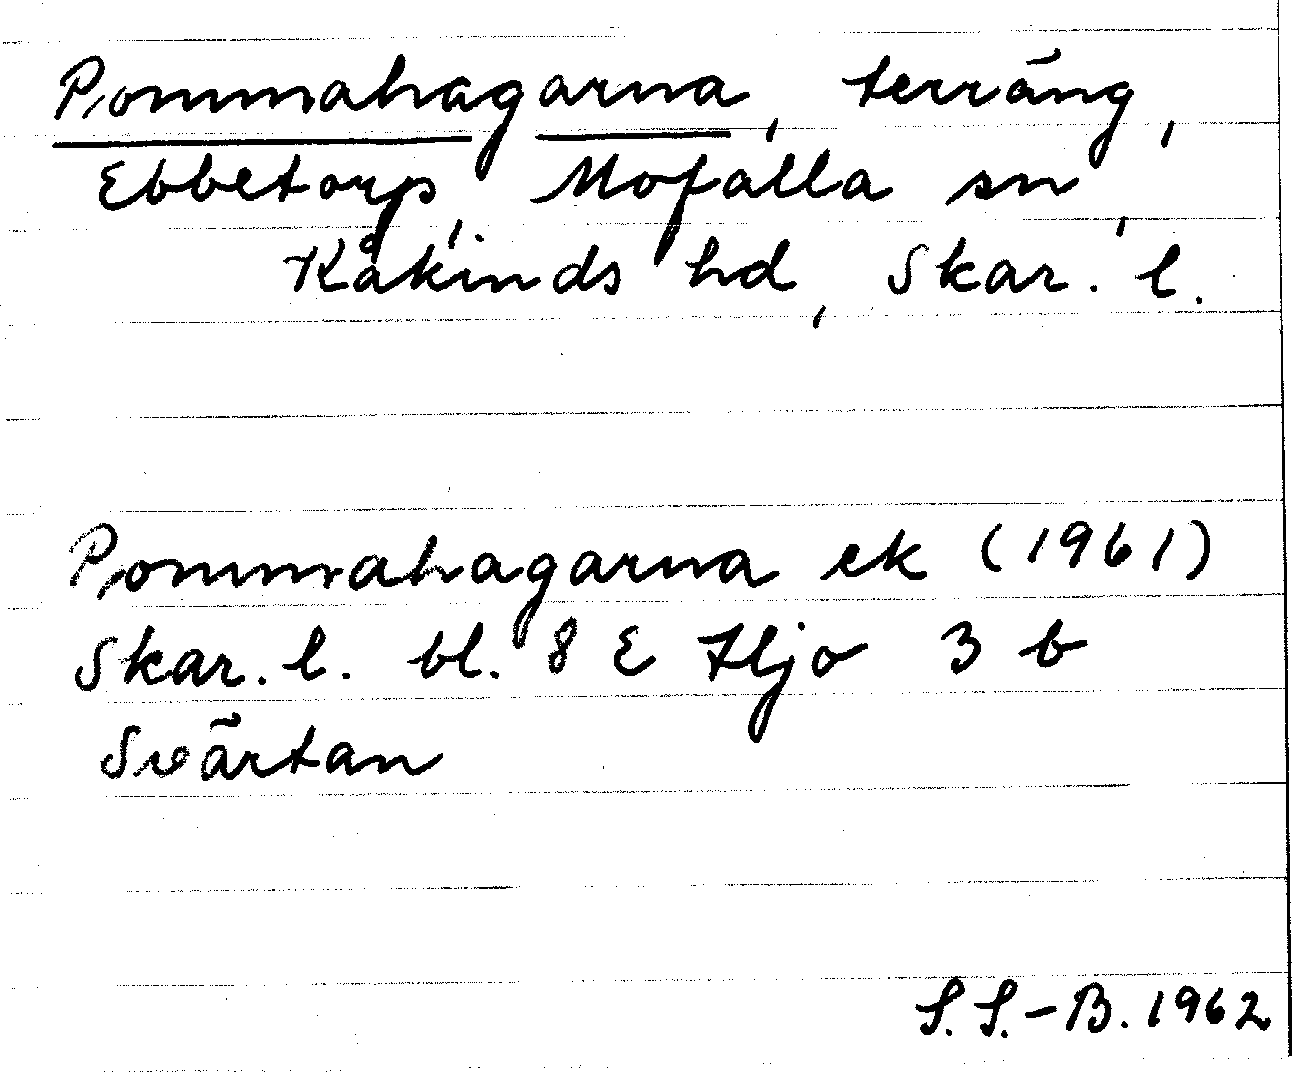 Pommahagarna, terräng,
Ebbetorp, Mofalla sn,
Kåkinds hd, Skar. l.
Pommahagarna ek (1961)
Skar. l. bl. 8 E Hjo 3 b
Svärtan
S. S.-B. 1962